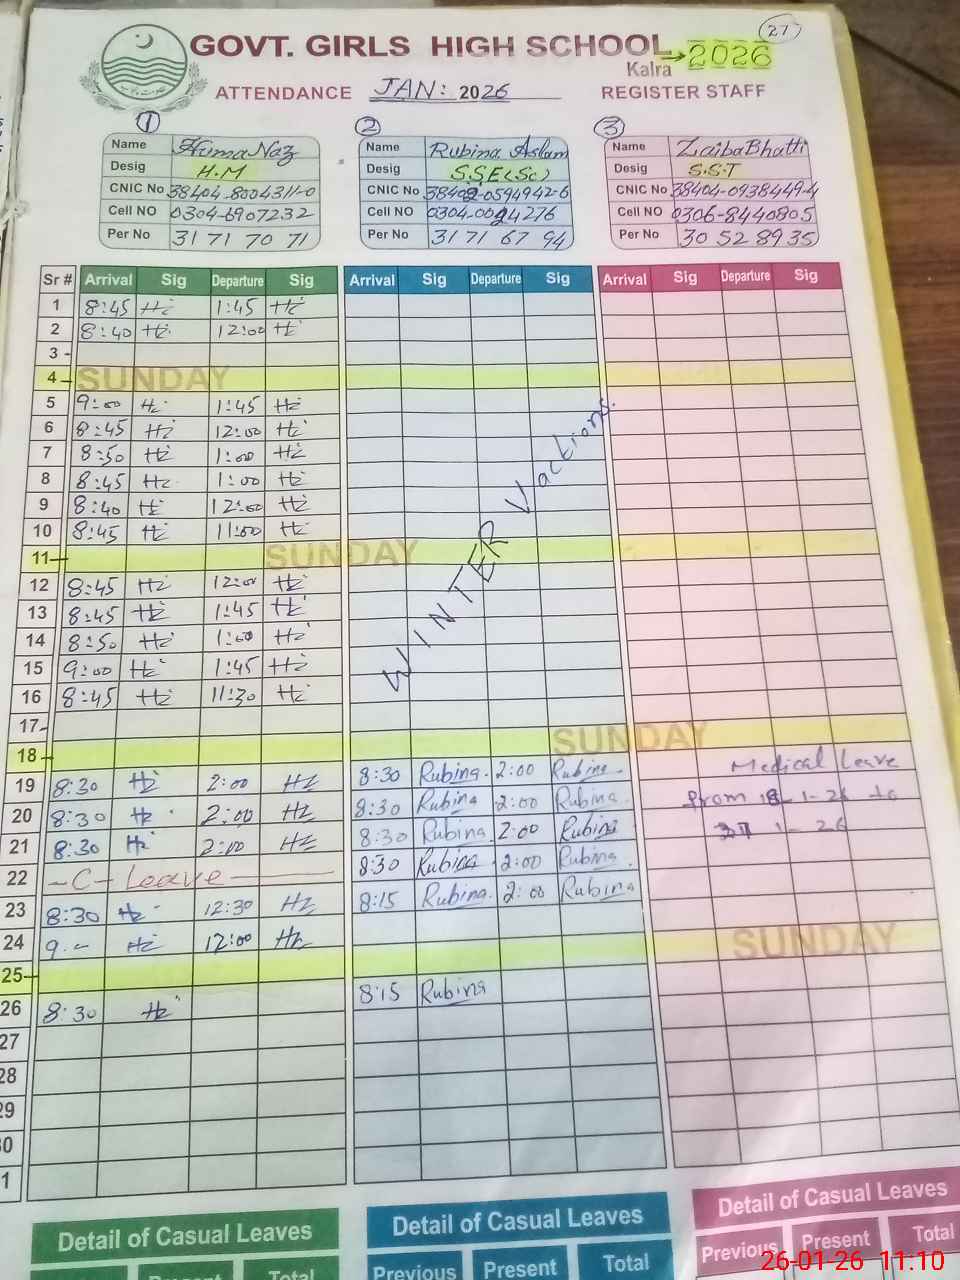 27
GOVT. GIRLS HIGH SCHOOL → 2026
Kalra
ATTENDANCE JAN: 2026 REGISTER STAFF
1 2 3
Name Huma Naz Name Rubina Aslam Name Zaiba Bhatti
Desig H.M Desig S.S.E(Sc) Desig S.S.T
CNIC No 38404-8004311-0 CNIC No 38402-0594942-6 CNIC No 38404-0938449-4
Cell NO 0304-6907232 Cell NO 0304-0024276 Cell NO 0306-8440805
Per No 31 71 70 71 Per No 31 71 67 94 Per No 30 52 89 35
Sr # Arrival Sig Departure Sig Arrival Sig Departure Sig Arrival Sig Departure Sig
1 8:45 Hz 1:45 Hz
2 8:40 Hz 12:00 Hz
3 -
4 - SUNDAY
5 9:00 Hz 1:45 Hz
6 8:45 Hz 12:00 Hz
7 8:50 Hz 1:00 Hz
8 8:45 Hz 1:00 Hz
9 8:40 Hz 12:00 Hz
10 8:45 Hz 11:00 Hz
11 - SUNDAY
12 8:45 Hz 12:00 Hz
13 8:45 Hz 1:45 Hz
14 8:50 Hz 1:00 Hz
15 9:00 Hz 1:45 Hz
16 8:45 Hz 11:30 Hz
WINTER Vactions.
17 -
18 - SUNDAY
19 8:30 Hz 2:00 Hz 8:30 Rubina 2:00 Rubina Medical Leave
20 8:30 Hz 2:00 Hz 8:30 Rubina 2:00 Rubina from 18-1-26 to
21 8:30 Hz 2:00 Hz 8:30 Rubina 2:00 Rubina 1-26
22 - C - Leave - 8:30 Rubina 2:00 Rubina
23 8:30 Hz 12:30 Hz 8:15 Rubina 2:00 Rubina
24 9 - Hz 12:00 Hz
25 - SUNDAY
26 8:30 Hz 8:15 Rubina
27
28
29
30
1
Detail of Casual Leaves Detail of Casual Leaves Detail of Casual Leaves
Present Total Previous Present Total Previous Present Total
26-01-26 11:10